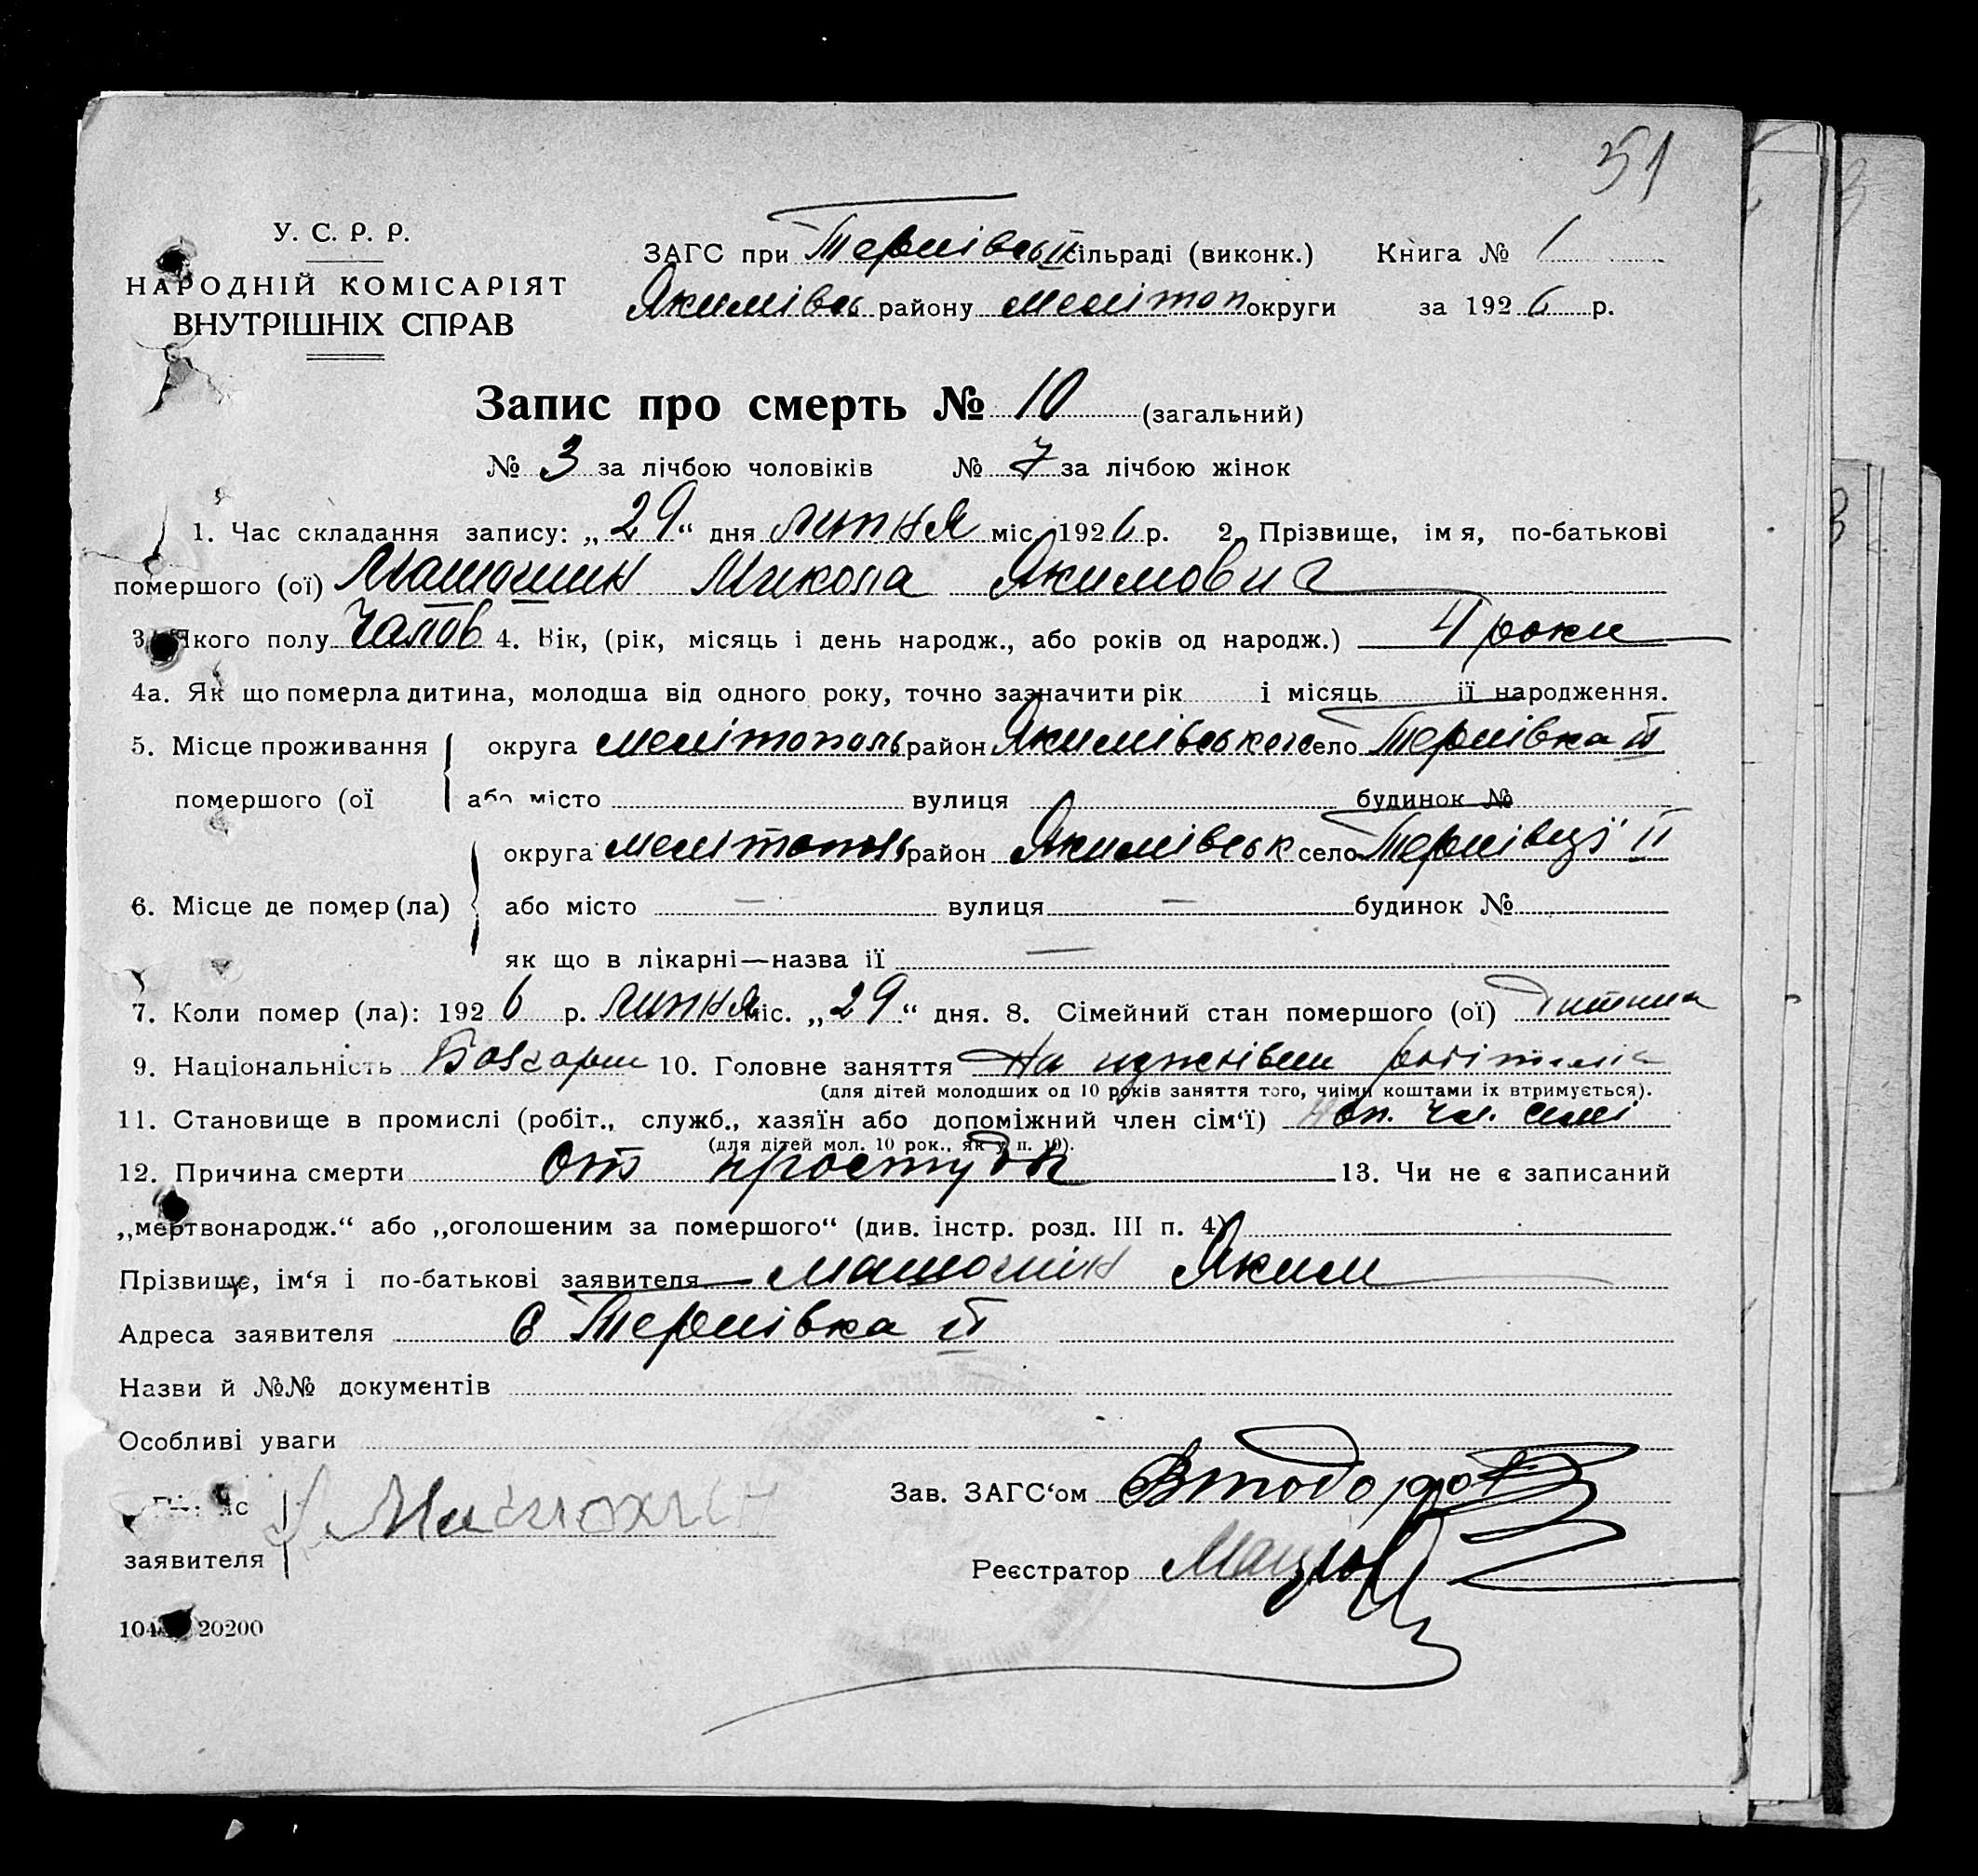 51
У. С. Р. Р.
НАРОДНІЙ КОМІСАРІЯТ
ВНУТРІШНІХ СПРАВ
ЗАГС при Тернівськ ІІ сільраді (виконк.) Книга № 1
Якимівсь району Мелітоп округи за 1926 р.
Запис про смерть № 10 (загальний)
№ 3 за лічбою чоловіків № 7 за лічбою жінок
1. Час складання запису: „29“ дня липня міс. 1926 р. 2. Прізвище, імя, по-батькові
помершого (ої) Микола Якимович
3. Якого полу чолов 4. Вік, (рік, місяць і день народж., або років од народж.) 4 роки
4а. Як що померла дитина, молодша від одного року, точно зазначити рік і місяць її народження.
5. Місце проживання округа Мелітополь район Якимівського село Тернівка ІІ
помершого (ої або місто вулиця будинок №
округа Мелітополь район Якимівськ село Тернівці ІІ
6. Місце де помер (ла) або місто — вулиця — будинок №
як що в лікарні—назва її —
7. Коли помер (ла): 1926 р. липня міс. „29“ дня. 8. Сімейний стан помершого (ої) дитина
9. Національність Болгарин 10. Головне заняття На іждівені
(для дітей молодших од 10 років заняття того, чиїми коштами їх втримується).
11. Становище в промислі (робіт., служб., хазяїн або допоміжний член сім‘ї) доп. чл. сімї
(для дітей мол. 10 рок., як у п. 10).
12. Причина смерти От простуды 13. Чи не є записаний
„мертвонародж.“ або „оголошеним за помершого“ (див. інстр. розд. III п. 4)
Прізвище, ім‘я і по-батькові заявителя Яким
Адреса заявителя с Тернівка ІІ
Назви й №№ документів
Особливі уваги
Зав. ЗАГС‘ом В Тодоров
заявителя
Реєстратор
20200